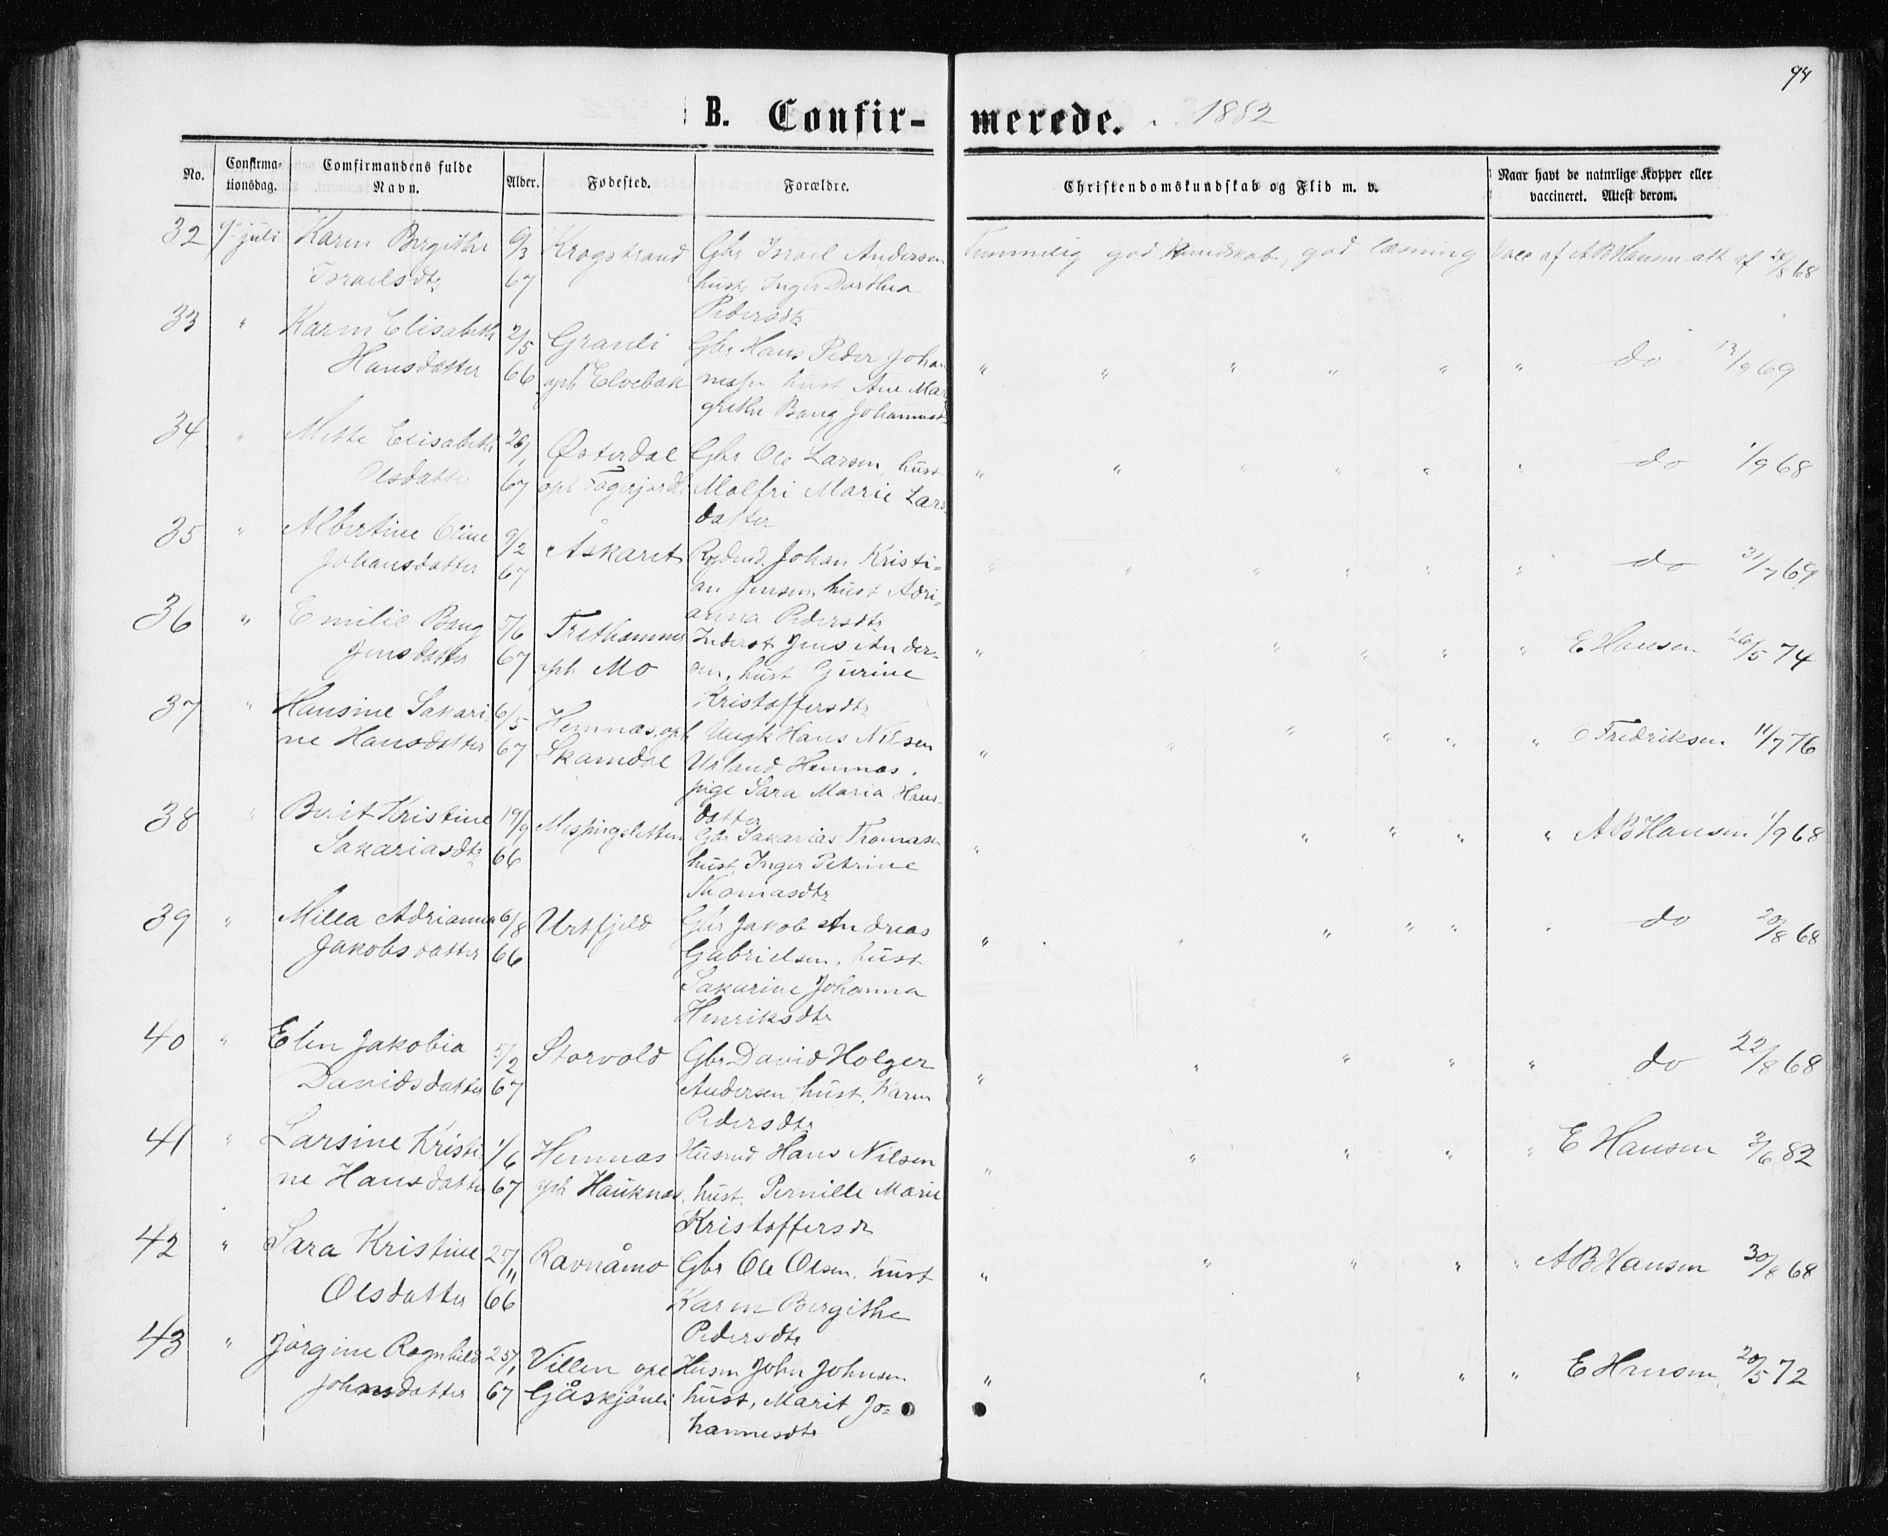 94
B. Confir- merede. 1882
No. Confirma-tionsdag. Comfirmandens fulde Navn. Alder. Fødested. Forældre. Christendomskundskab og Flid m. v. Naar havt de naturlige Kopper eller vaccineret. Attest derom.
32 9 juli Karen Bergithe 6/3 Krogstrand Gbr Israel Andersen Temmelig god Kundskab, god læsning Vacc af A B Hansen att af 24/8 68
Israelsdtr 67 hustr Inger Dorthea
Pedersdtr
33 " Karen Elisabeth 2/5 Granli Gbr Hans Peder Johan " " " " " " do 13/9 69
Hansdatter 66 oph Elvebak nesen hust Ane Mar
grethe Bang Johannesd
34 " Mette Elisabeth 26/1 Østerdal Gbr Ole Larsen, hust " " " " " " do 1/9 68
Olsdatter 67 oph Fagerjord Malfri Marie Lars
datter
35 " Albertine Oline 9/2 Åskaret Johan Kristi- " " " " " " do 31/7 69
Johansdatter 67 an Jensen, hust Adri-
anna Pedersdtr
36 " Emilie Bang 5/6 Trethammer Inderst Jens Ander- " " " " " " E Hansen 26/5 74
Jensdatter 67 oph Mo sen, hust Gurine
Kristoffersdtr
37 " Hansine Sakari 6/5 Hemnæs, oph Ungk Hans Nilsen " " " " " " O Fredriksen 11/7 76
ne Hansdatter 67 Skamdal Urland Hemnæs,
pige Sara Maria Hans
datter
38 " Berit Kristine 19/9 Messingsletten Gbr Sakarias Thomasen " " " " " A B Hansen 1/9 68
Sakariasdtr 66 hust Inger Petrine
Thomasdtr
39 " Milla Adrianna 6/8 Urtfjeld Gbr Jakob Andreas " " " " " " do 20/8 68
Jakobsdatter 66 Gabrielsen, hust
Sakarine Johanna
Henriksdtr
40 " Elen Jakobia 5/2 Storvold Gbr David Holger " " " " " do 22/8 68
Davidsdatter 67 Andersen, hust, Karen
Pedersdtr
41 " Larsine Kristi 1/6 Hemnæs Husmd Hans Nilsen " " " " " E Hansen 3/6 82
ne Hansdatter 67 oph Hauknæs, hust, Pernille Marie
Kristoffersdr
42 " Sara Kristine 27/11 Ravnåmo Gbr Ole Olsen, hust " " " " " A B Hansen 30/8 68
Olsdatter 66 Karen Bergithe
Pedersdtr
43 " Jørgine Ragnhild 25/1 Villen oph Husm John Johnsen " " " " " E Hansen 20/5 72
Johnsdatter 67 Gåskjønli hust, Marit Jo-
hannesdtr